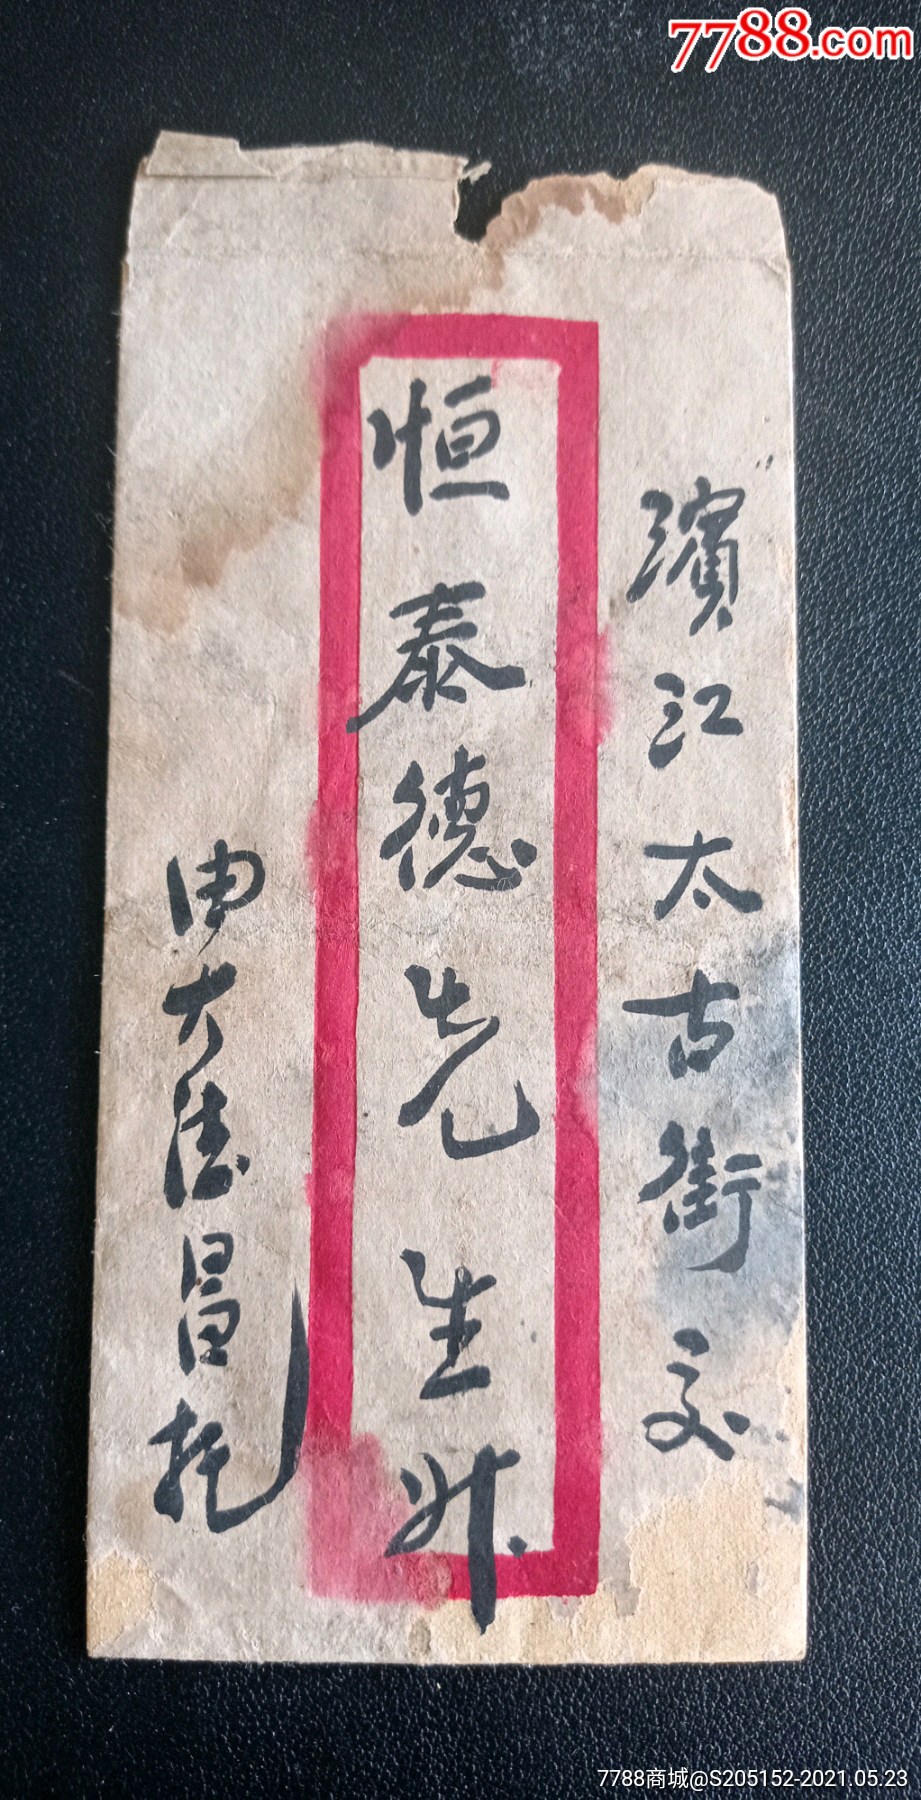 7788.com
濱江太古街交
恒泰德先生升
申大德昌托
7788商城@S205152-2021.05.23